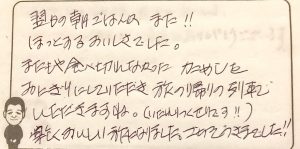 翌日の朝ごはんも また!!
ほっとするおいしさでした。
またもや食べ切れなかった ため
おにぎりにしていただき 旅の帰りの列車で
いただきますね。(いたれりつくせりです!!)
楽しくおいしい旅になりました。ごちそうさまでした!!